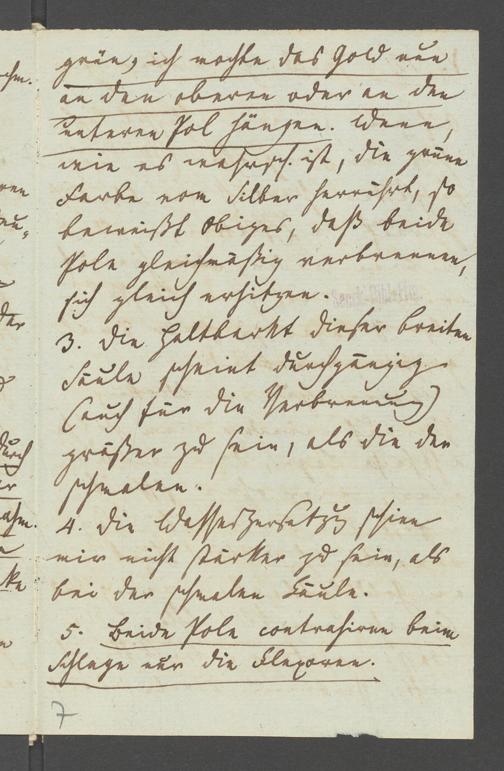 grün, ich mochte das Gold nun
an den oberen oder an den
unteren Pol hängen. Wenn,
wie es wahrsch. ist, die grüne
Farbe vom Silber herrührt, so
beweißt Obiges, daß beide
Pole gleichmäßig verbrennen,
sich gleich erhitzen.
3. Die Haltbarkt dieser breiten
Säule scheint durchgängig
(auch für die Verbrennung)
größer zu sein, als die der
schmalen.
4. Die Wasserzersetzg schien
mir nicht stärker zu sein, als
bei der schmalen Säule.
5. Beide Pole contrahiren beim
Schlage nur die Flexoren.
7